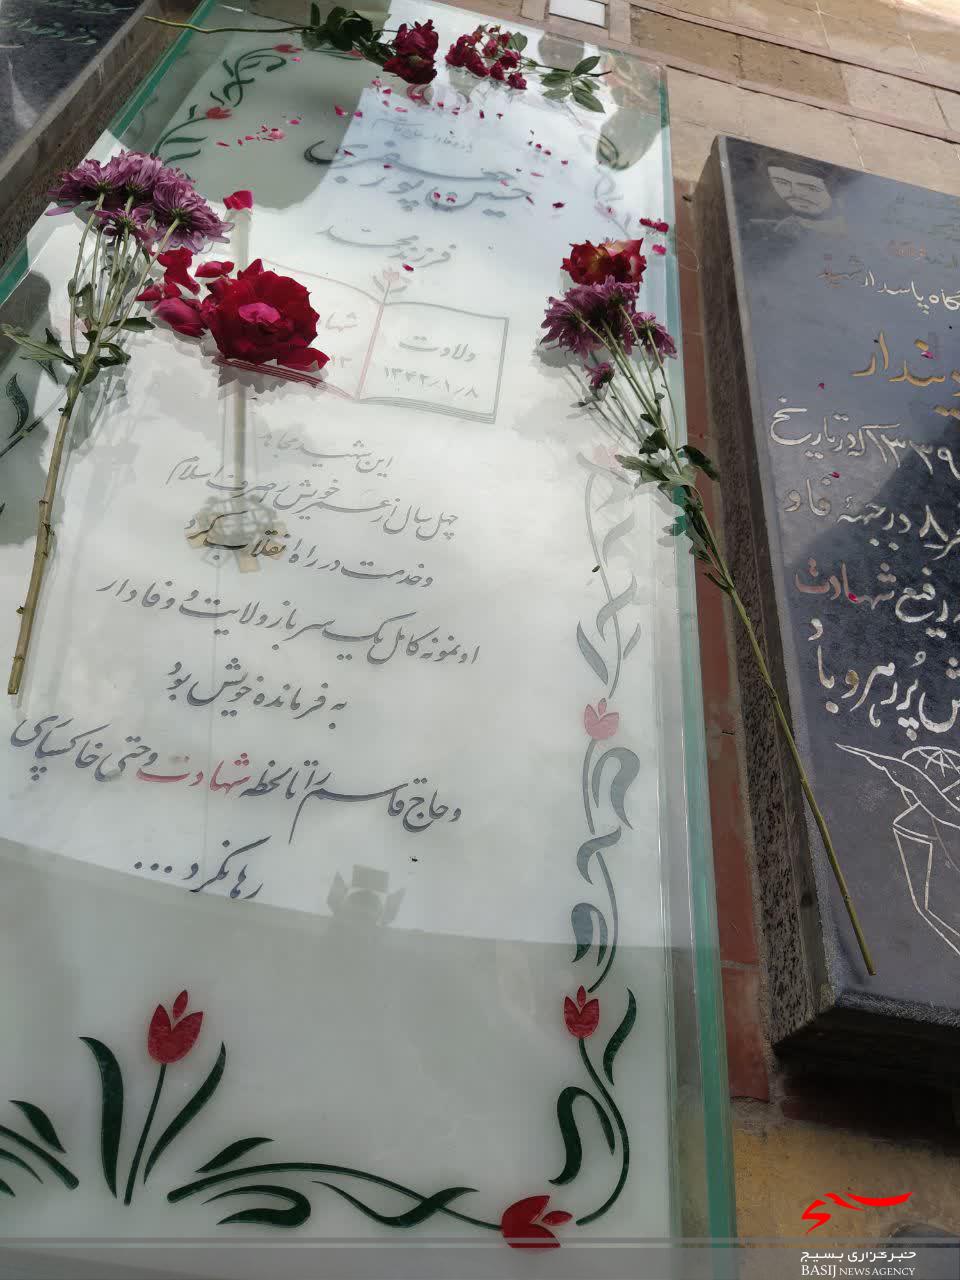 حسین پورجعفری
فرزند محمد
ولادت
۱۳۴۲/۱/۸
شها
۱۳
این شهید مجاهد
چهل سال از عمر خویش را صرف اسلام
و خدمت در راه انقلاب کرد
او نمونه کامل یک سرباز ولایت و وفادار
به فرمانده خویش بود
و حاج قاسم را تا لحظه شهادت و حتی خاکسپاری
رها نکرد ...
گاه پاسدار شهید
ندار
۱۳۳۹ که در تاریخ
در جبهه فاو
رفیع شهادت
ش پر رهرو باد
خبرگزاری بسیج
BASIJ NEWS AGENCY